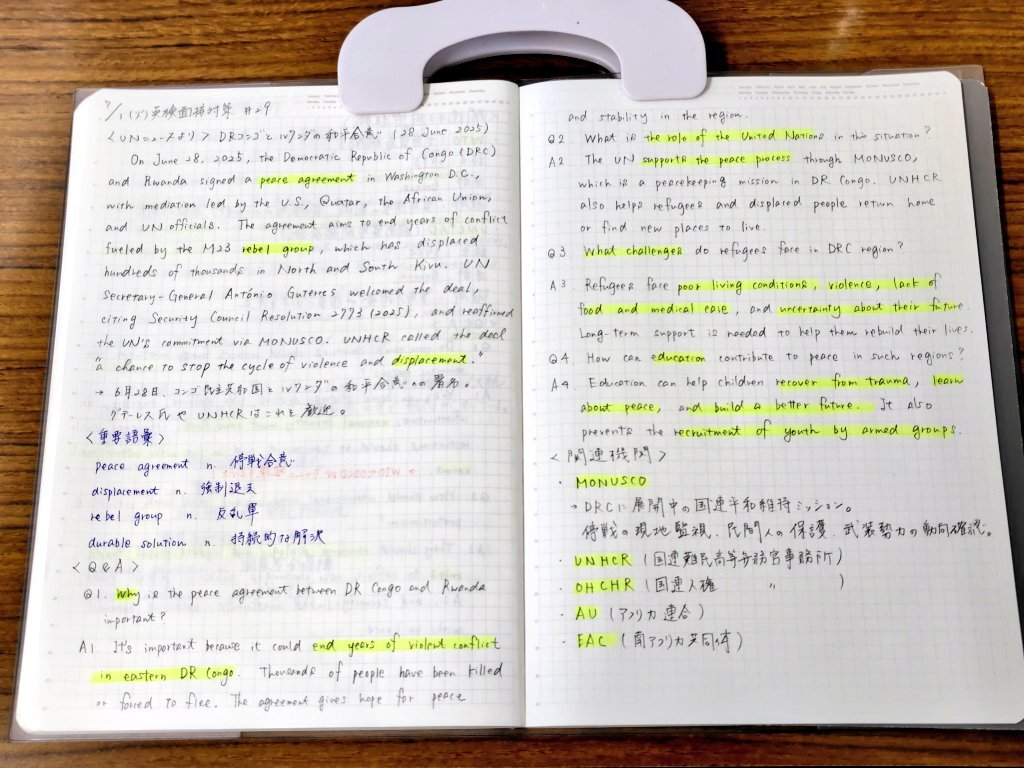 7/1 (火) 英検面接対策 #29
<UNニュースより> DRコンゴとルワンダの和平合意 (28 June 2025)
On June 28, 2025, the Democratic Republic of Congo (DRC)
and Rwanda signed a peace agreement in Washington D.C.,
with mediation led by the U.S., Quatar, the African Union,
and UN officials. The agreement aims to end years of conflict
fueled by the M23 rebel group, which has displaced
hundreds of thousands in North and South Kivu. UN
Secretary-General António Guterres welcomed the deal,
citing Security Council Resolution 2773 (2025), and reaffirmed
the UN's commitment via MONUSCO. UNHCR called the deal
"a chance to stop the cycle of violence and displacement."
→ 6月28日、コンゴ民主共和国とルワンダの和平合意への署名。
グテーレス氏やUNHCRはこれを歓迎。
<重要語彙>
peace agreement n. 停戦合意
displacement n. 強制退去
rebel group n. 反乱軍
durable solution n. 持続的な解決
<Q&A>
Q1. Why is the peace agreement between DR Congo and Rwanda
important?
A1. It's important because it could end years of violent conflict
in eastern DR Congo. Thousands of people have been killed
or forced to flee. The agreement gives hope for peace
and stability in the region.
Q2. What is the role of the United Nations in this situation?
A2. The UN supports the peace process through MONUSCO,
which is a peacekeeping mission in DR Congo. UNHCR
also helps refugees and displaced people return home
or find new places to live.
Q3. What challenges do refugees face in DRC region?
A3. Refugees face poor living conditions, violence, lack of
food and medical care, and uncertainty about their future.
Long-term support is needed to help them rebuild their lives.
Q4. How can education contribute to peace in such regions?
A4. Education can help children recover from trauma, learn
about peace, and build a better future. It also
prevents the recruitment of youth by armed groups.
<関連機関>
・MONUSCO
→DRCに展開中の国連平和維持ミッション。
停戦の現地監視、民間人の保護、武装勢力の動向確認。
・UNHCR (国連難民高等弁務官事務所)
・OHCHR (国連人権 〃 )
・AU (アフリカ連合)
・EAC (南アフリカ共同体)